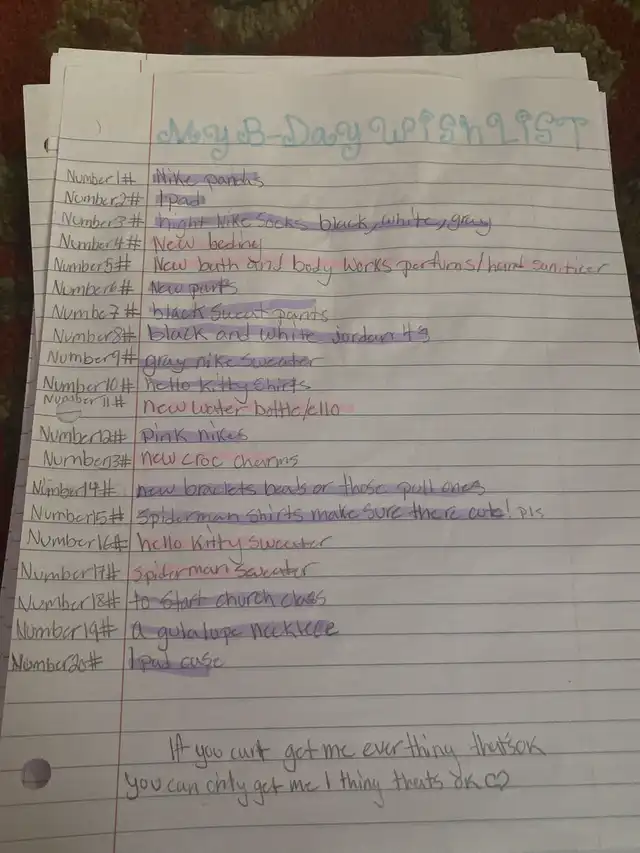 My B-Day Wish List
Number1# Nike pandas
Number2# Ipad
Number3# hight Nike Socks black, white, gray
Number4# New beding
Number5# New bath and body works perfums/hand sanitizer
Number6# New purfs
Number7# black sweat pants
Number8# black and white jordan 4s
Number9# gray nike sweater
Number10# hello kitty shirts
Number11# new water bottle/ello
Number12# pink nikes
Number13# new croc charms
Number14# new braclets beads or those pull ones
Number15# Spiderman shirts make sure there cute! pls
Number16# hello kitty sweater
Number17# spiderman sweater
Number18# to start church class
Number19# a gulalupe necklece
Number20# Ipad case
If you cant get me everthing thats ok
you can only get me 1 thing thats ok ♡